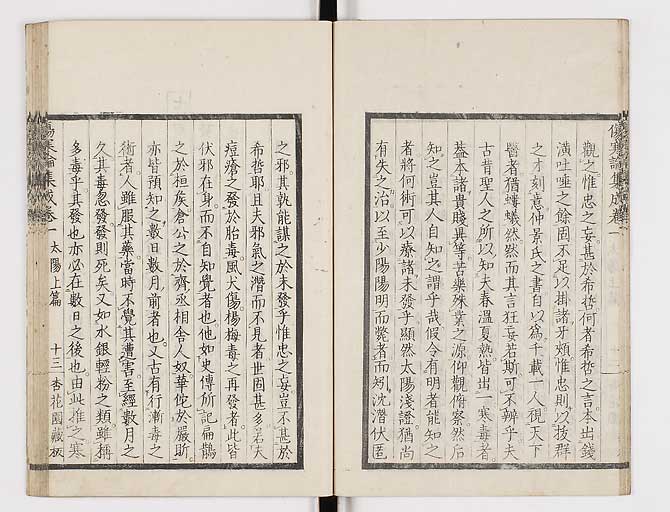 傷寒論集成卷一
觀之惟忠之妄甚於希哲何者希哲之言本出錢
潢吐唾之餘固不足以掛諸牙頰惟忠則以拔群
之才刻意仲景氏之書自以爲千載一人視天下
醫者猶螻蟻然然而其言狂妄若斯可不辨乎夫
古昔聖人之所以知夫春溫夏熱皆出一寒毒者
蓋本諸貴賤異等苦樂殊業之源仰觀俯察然后
知之豈其人自知之謂乎哉假令有明者能知之
者將何術可以療諸未發乎顯然太陽淺證猶尚
有失之治以至少陽陽明而斃者而矧沈潛伏匿
之邪其孰能謀之於未發乎惟忠之妄豈不甚於
希哲耶且夫邪氣之潛而不見者世固甚多若夫
痘瘡之發於胎毒風犬傷楊梅毒之再發者此皆
伏邪在身而不自知覺者也他如史傳所記扁鵲
之於桓矦倉公之於齊丞相舍人奴華佗於嚴昕
亦皆預知之數日數月前者也又古有行漸毒之
術者人雖服其藥當時不覺其遭害至經數月之
久其毒忽發發則死矣又如水銀輕粉之類雖稱
多毒乎其發也亦必在數日之後也由此推之寒
傷寒論集成卷一 太陽上篇 十三 杏花園藏板